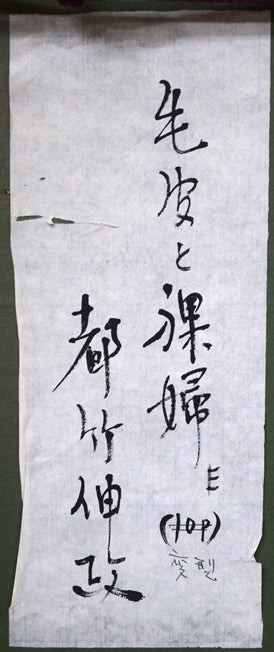 毛皮と裸婦 E
(10P)
変型
都竹伸政